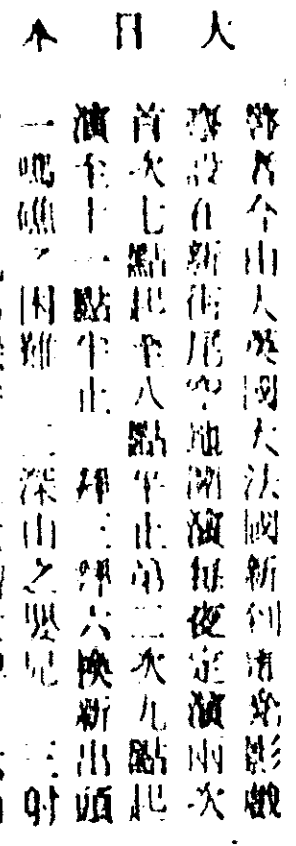 大日本
者今由大英國大法國新到影戲
寮設在新街尾空地開演每夜定演兩次
首次七點起至八點半止第二次九點起
演至十一點半止 拜三拜六換新出頭
一鳴礁之困難 二深山之嬰兒 三射